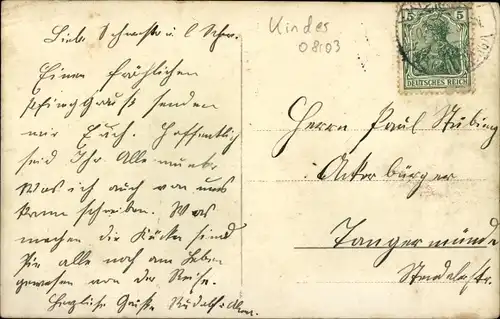 Kindes
08103
Liebe Schwester u. l. Schw.
Einen fröhlichen
Pfingstgruß senden
wir Euch. Hoffentlich
seid Ihr Alle munter
was ich auch von uns
kann schreiben. Was
machen die Kücken sind
sie alle noch am Leben
gewesen von der Reise.
Herzliche Grüße Rudolf u.
5 5
DEUTSCHES REICH
Herrn Paul Stübing
Ackerbürger
Tangermünde
Stendalerstr.